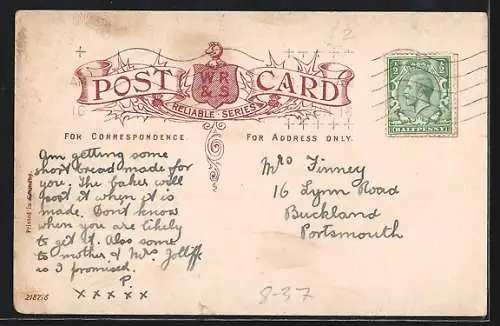 £2
POST CARD
W R
& S
RELIABLE SERIES
½ ½
HALFPENNY
FOR CORRESPONDENCE.
FOR ADDRESS ONLY.
Im getting some
short bread made for
you. The baker will
post it when it is
made. Dont know
when you are likely
to get it. Also some
to mother & Mrs Jolliffe
as I promised.
P.
x x x x x
Mrs Finney
16 Lynn Road
Buckland
Portsmouth
Printed in
218276
8-37